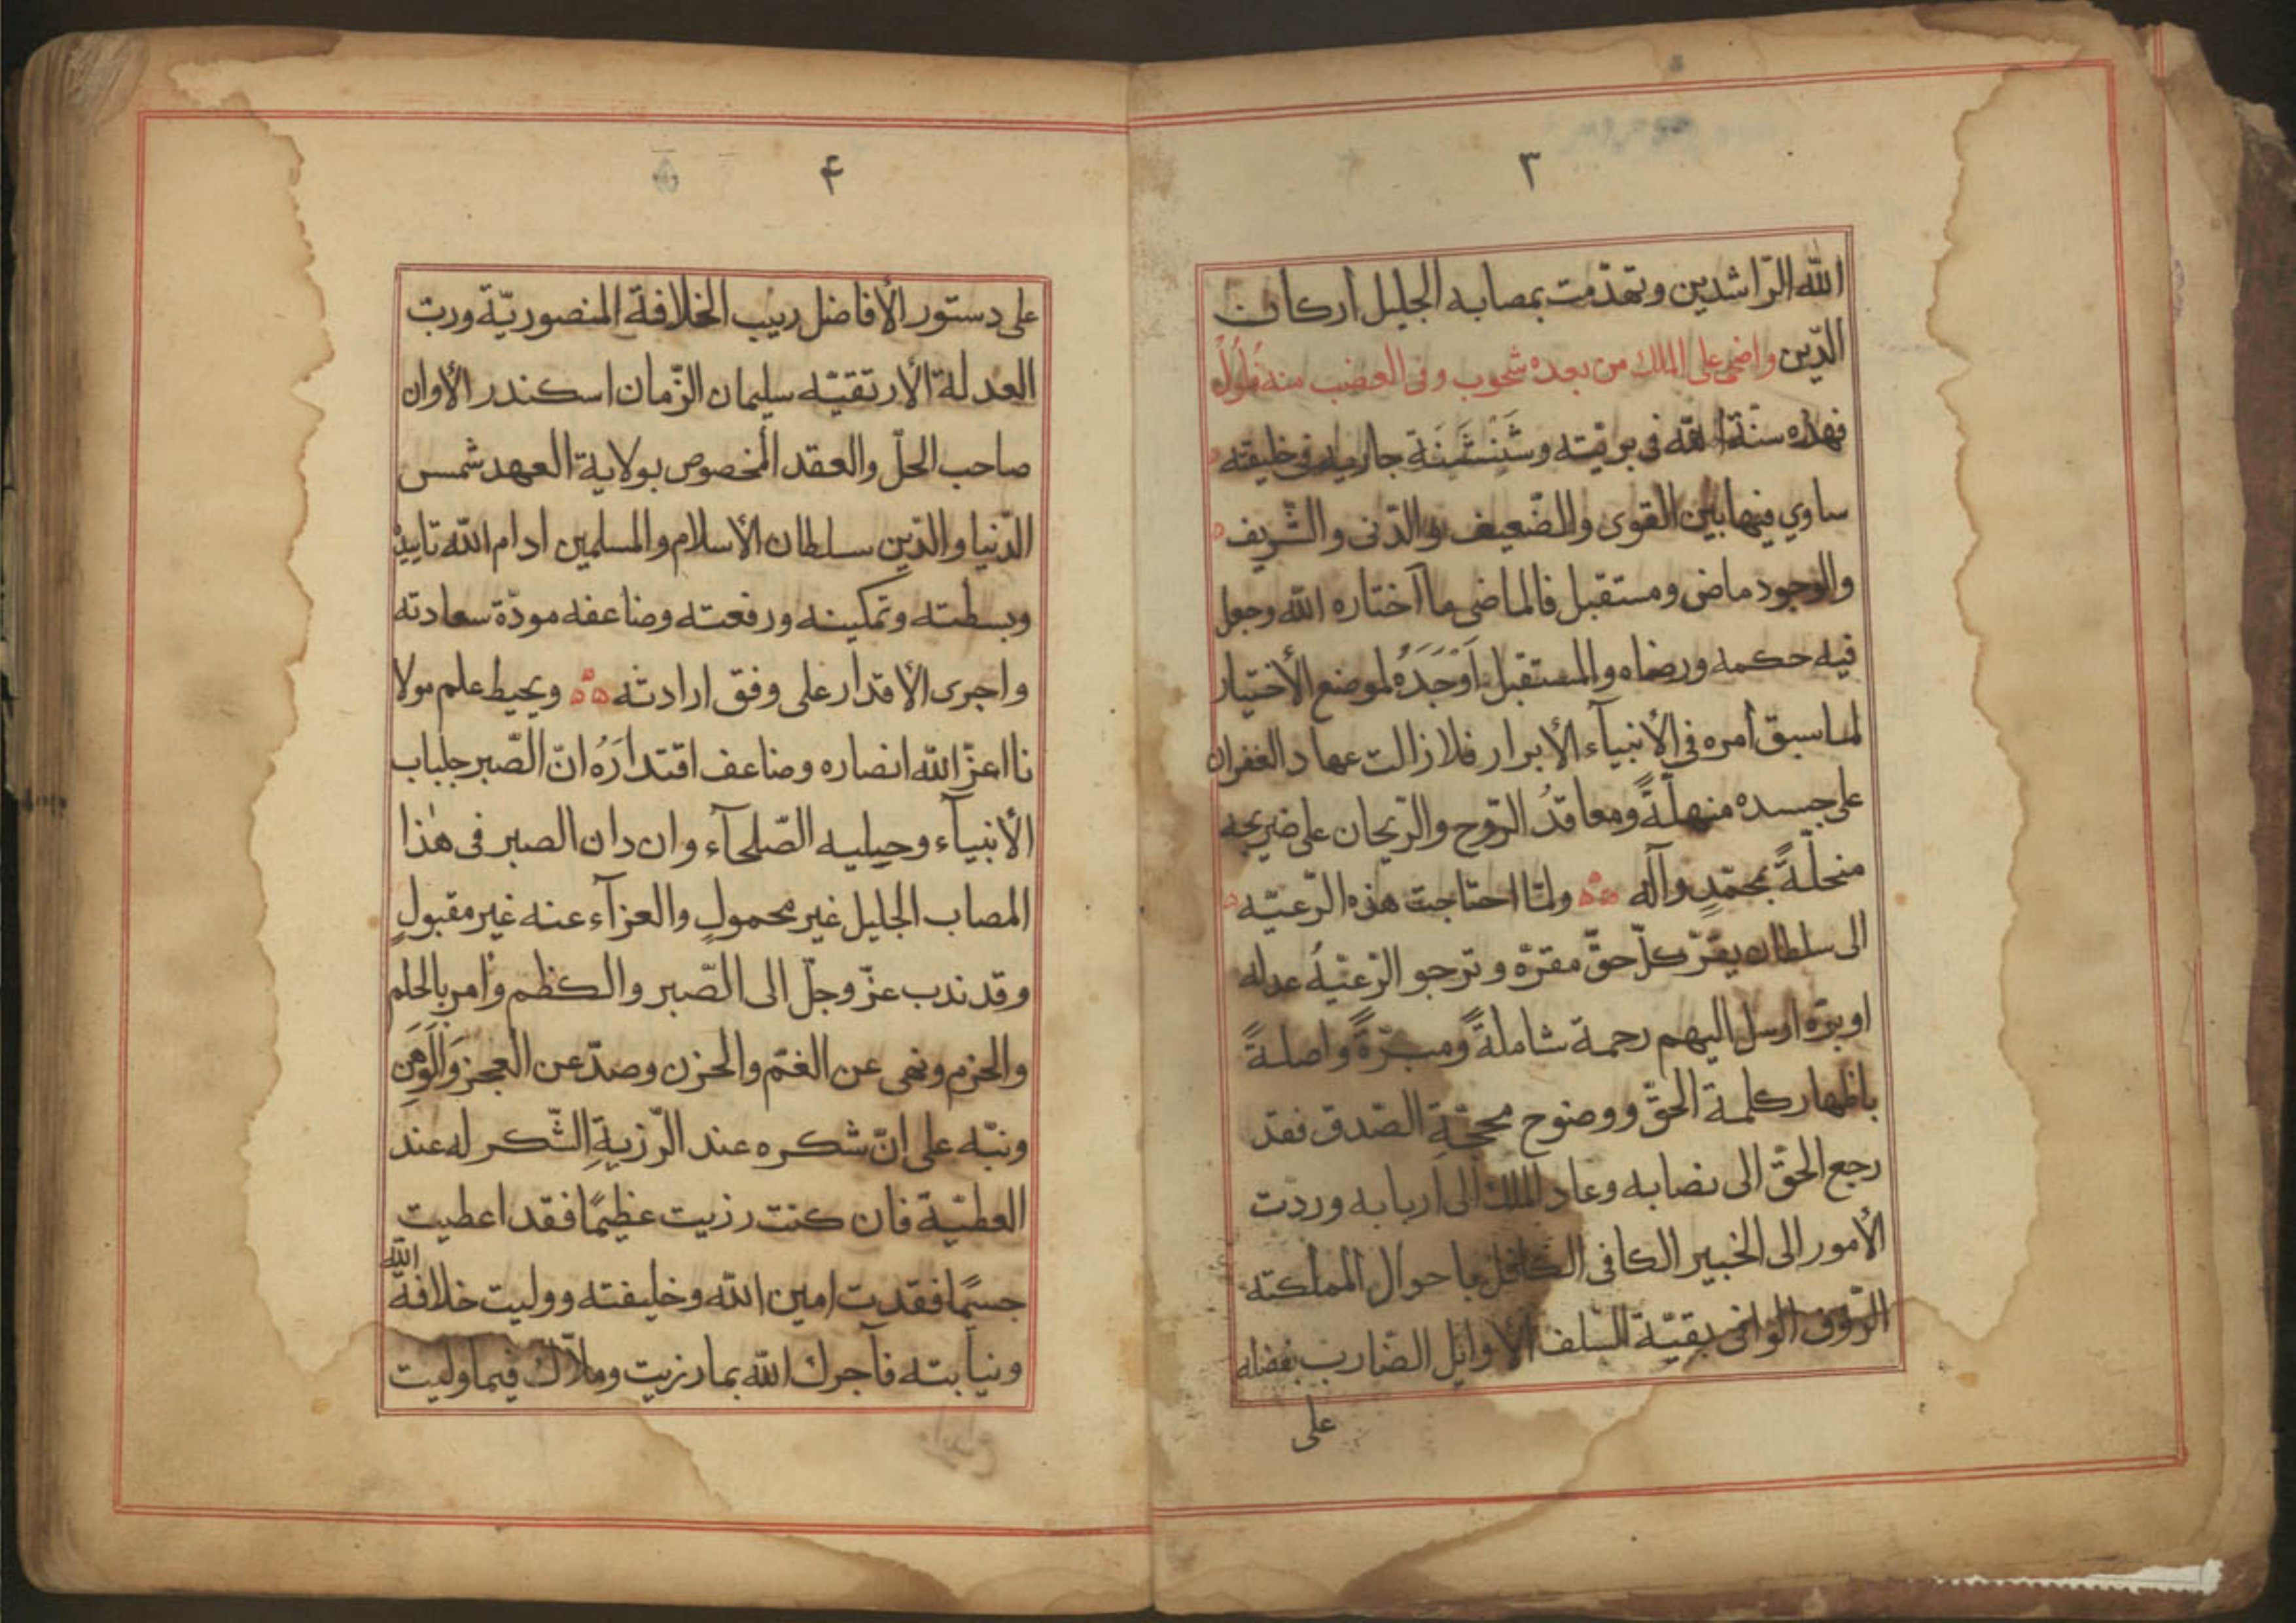 ٣
الله الرّاشدين وتهدّمت بمصابه الجليل أركان
الدّين واضحى على الملك من بعده شحوب وفى العضب منه فلول
فهذه سنّة الله فى بريّته وشَنْشَنَة جارية فى خليقته
ساوي فيها بين القوى والضّعيف والدّنى والشّريف
والوجود ماض ومستقبل فالماضى ما آختاره الله وجعل
فيه حكمه ورضاه والمستقبل اَوْجَدَهُ لموضع الأختيار
لما سبق أمره فى الأنبيآء الأبرار فلا زالت عهاد الغفران
على جسده منهلّةً ومعاقدُ الرّوح والرّيحان على ضريحه
منحلّةً بمحمّدٍ وآله ولمّا احتاجت هذه الرّعيّه
الى سلطان يقرّ كلّ حقّ مقرّه وترجو الرّعيّهُ عدله
او برّه ارسل اليهم رحمة شاملةً ومبرّةً واصلةً
باظهار كلمة الحقّ ووضوح محجّةِ الصّدق فقد
رجع الحقّ الى نصابه وعاد الملك الى أربابه وردّت
الأمور الى الخبير الكافى الكافل باحوال المملكته
الرّؤف الوافى بقيّة السّلف الأوايل الضّارب بفضله
على
۴
على دستور الأفاضل ربيب الخلافة المنصوريّة وربّ
العدلة الأرتقيّه سليمان الزّمان اسكندر الأوان
صاحب الحلّ والعقد المخصوص بولاية العهد شمس
الدّنيا والدّين سلطان الأسلام والمسلمين ادام الله تاييدهُ
وبسطته وتمكينه ورفعته وضاعفه مودّة سعادته
واجرى الأقدار على وفق ارادته ويحيط علم مولا
نا اعزّ الله انصاره وضاعف اقتدارَهُ انّ الصّبر جلباب
الأنبيآء وحيليه الصّلحآء وان دان الصبر فى هٰذا
المصاب الجليل غير محمولٍ والعزآء عنه غير مقبولٍ
وقد ندب عزّ وجلّ الى الصّبر والكظم وأمر بالحلم
والحزم ونهى عن الغمّ والحزن وصدّ عن العجز وَالوَهَنِ
ونبّه على انّ شكره عند الرّزيةِ الشّكر له عند
العطيّة فان كنت رزيت عظيمًا فقد اعطيت
جسمًا فقدت امين الله وخليفته ووليت خلافة الله
ونيابته فآجرك الله بما رزيت وملاّك فيما وليت